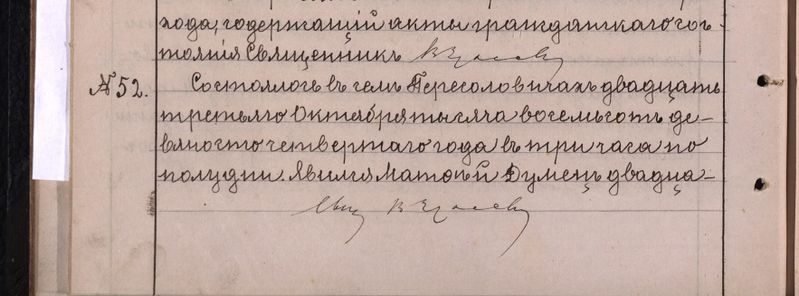 хода, содержащій акты гражданскаго сос-
тоянія Священникъ
№ 52. Состоялось въ селѣ Пересоловичахъ двадцать
третьяго Октября тысяча восемьсотъ де-
вяносто четвертаго года въ три часа по
полудни. Явился Матѳѣй Думецъ двадца-
Свящ